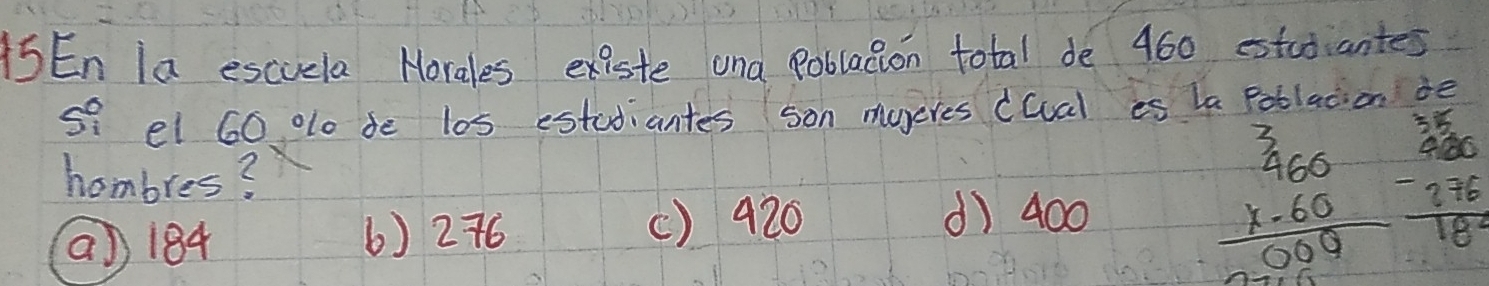 15 En la escuela Morales existe una Población total de 460 estudiantes
Si el 60 % de los estudiantes son mujeres ¿Cual es la Poblacion de
hombres?
a) 184 b) 276 c) 420 d) 400
3
460
x.60
000
35
460
- 276
18